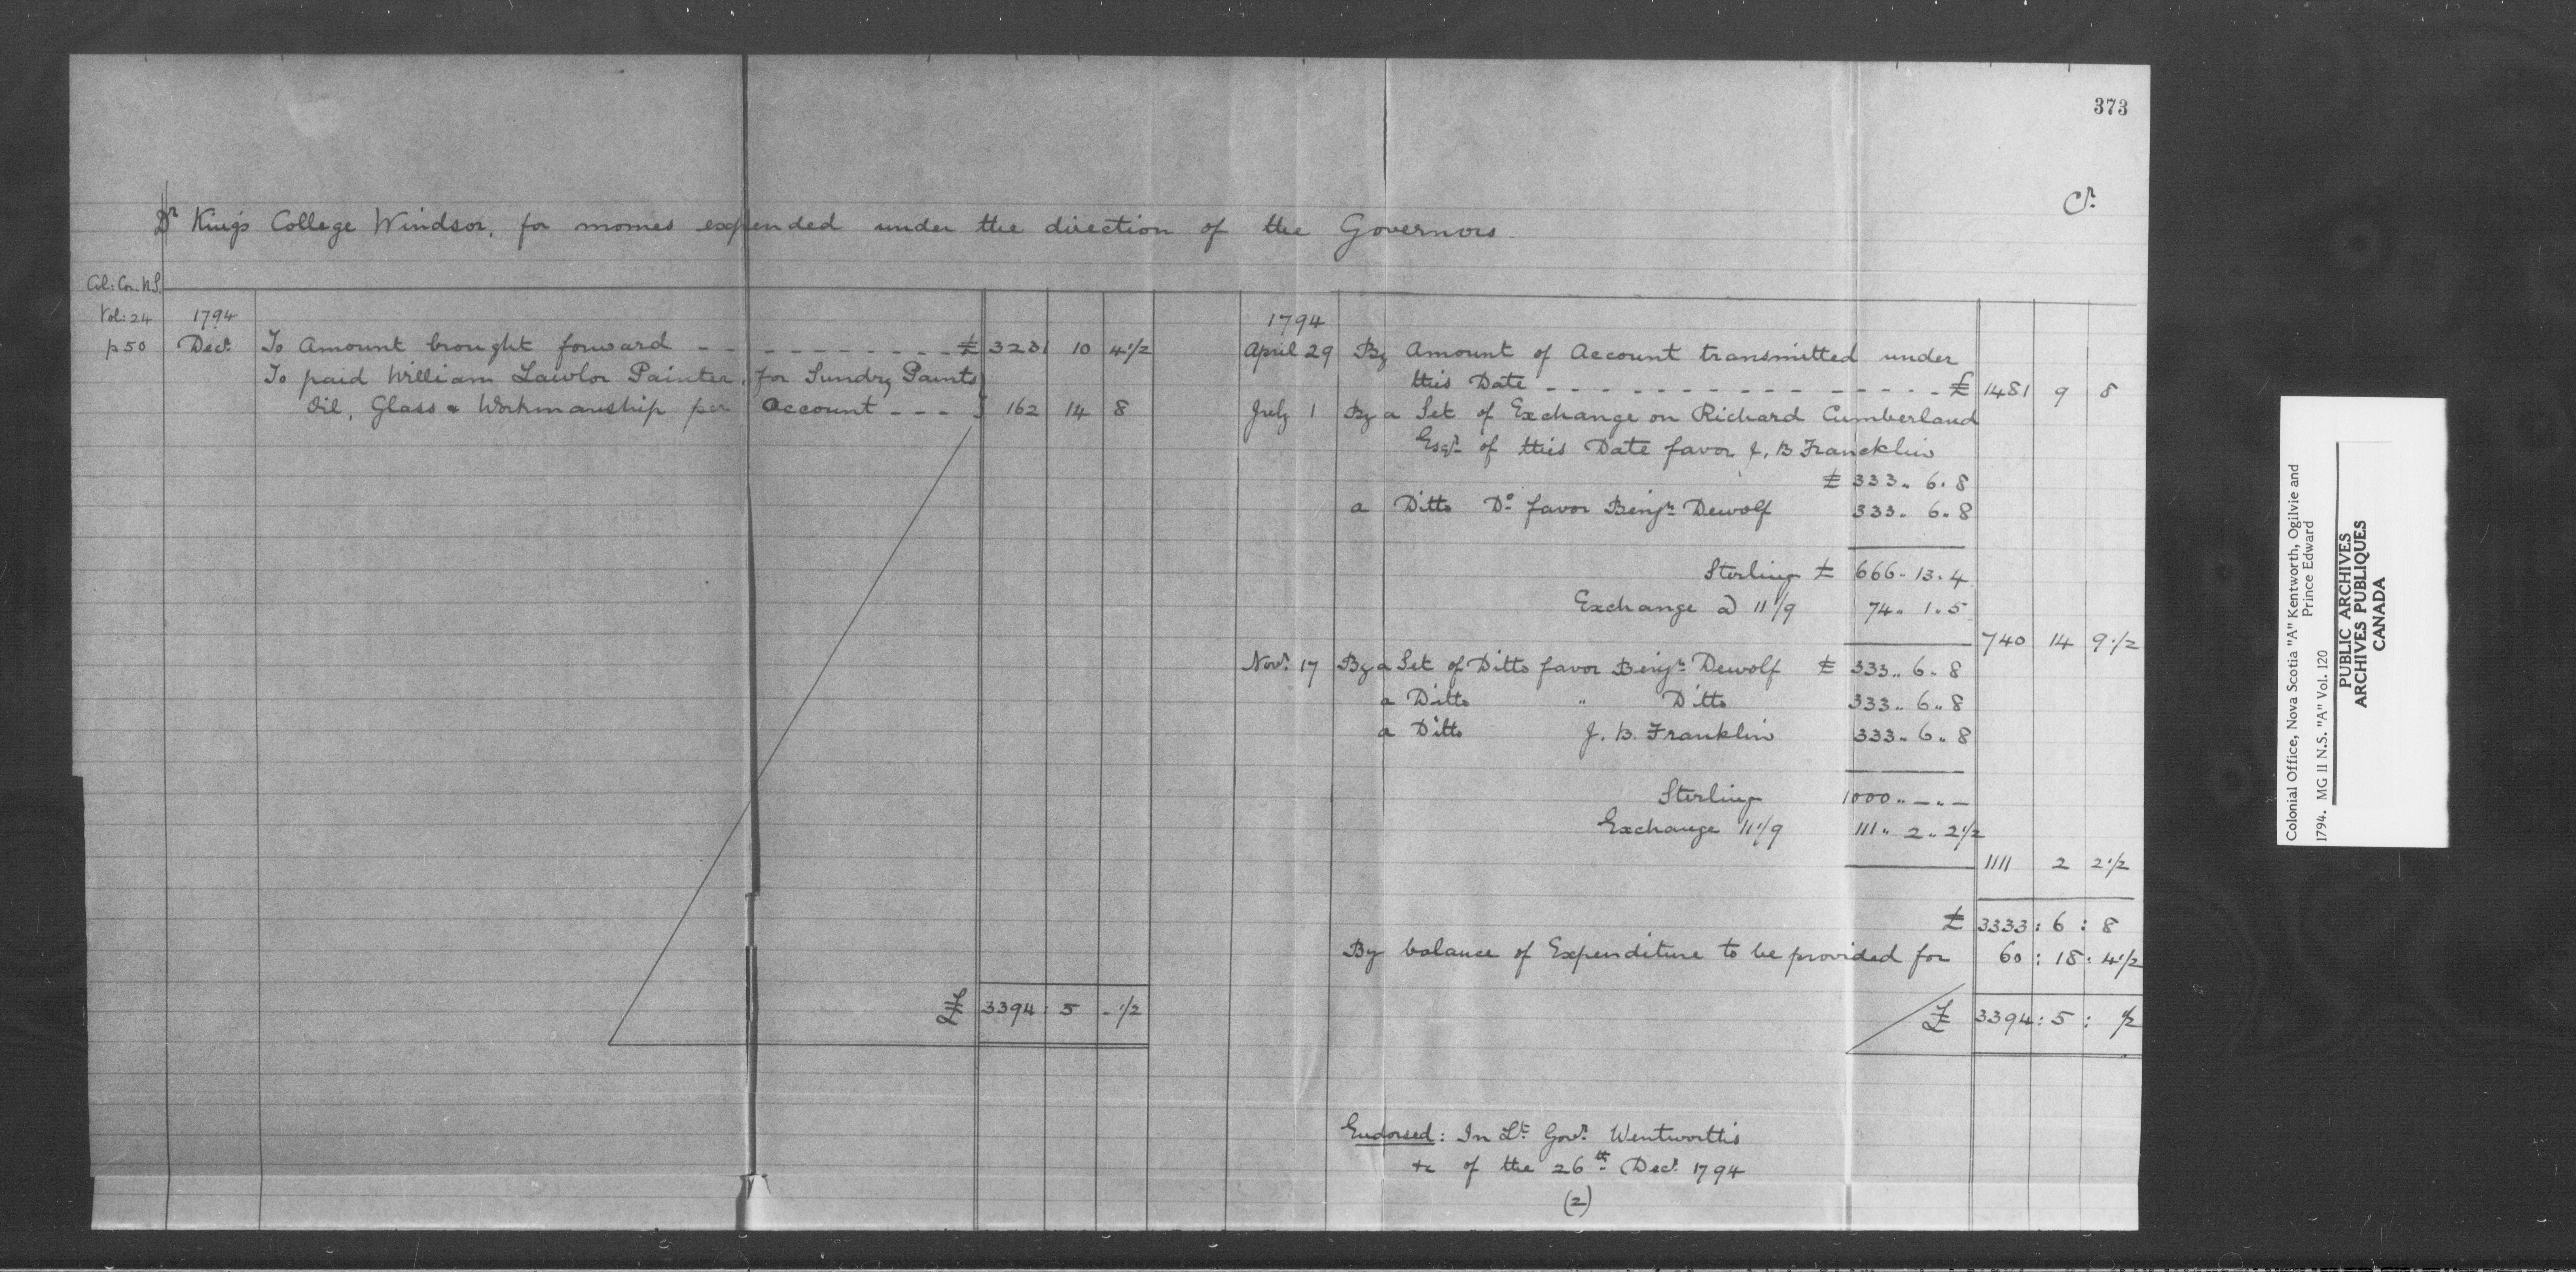 373
Cr.
Dr King's College Windsor, for monies expended under the direction of the Governors.
Col: Cor. N.S.
Vol: 24
p 50
1794
Decr. To Amount brought forward - - - - - - - - - - - £ 3231 10 4 1/2
To paid William Lawlor Painter, for Sundry Paints
Oil, Glass & Workmanship per Account - - - } 162 14 8
£ 3394 : 5 - 1/2
1794
April 29 By Amount of Account transmitted under
this Date - - - - - - - - - - - - - - £ 1481 9 8
July 1 By a Set of Exchange on Richard Cumberland
Esqr. of this Date favor J. B Francklin
£ 333 .. 6 . 8
a Ditto Do. favor Benjn. Dewolf 333 . 6 . 8
Sterling £ 666 - 13 . 4
Exchange @ 11 1/9 74 .. 1 .. 5
740 14 9 1/2
Novr. 17 By a Set of Ditto favor Benjn. Dewolf £ 333 .. 6 . 8
a Ditto " Ditto 333 .. 6 .. 8
a Ditto J. B. Franklin 333 .. 6 .. 8
Sterling 1000 .. — .. —
Exchange 11 1/9 111 .. 2 .. 2 1/2
1111 2 2 1/2
£ 3333 : 6 : 8
By balance of Expenditure to be provided for 60 : 18 : 4 1/2
£ 3394 : 5 : 1/2
Endorsed: In Lt. Govr. Wentworth's
&c of the 26th. Decr. 1794
(2)
Colonial Office, Nova Scotia "A" Kentworth, Ogilvie and
Prince Edward
1794. MG II N.S. "A" Vol. 120
PUBLIC ARCHIVES
ARCHIVES PUBLIQUES
CANADA